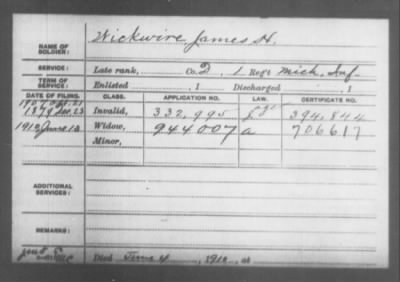 NAME OF SOLDIER: Wickwire James H.
SERVICE: Late rank, Co. D, 1 Reg't Mich. Inf.
TERM OF SERVICE: Enlisted , 1 Discharged , 1
DATE OF FILING. CLASS. APPLICATION NO. LAW. CERTIFICATE NO.
1879 23 Invalid, 332,995 394,844
1910 June 13 Widow, 944007 a 706617
Minor,
ADDITIONAL SERVICES:
REMARKS:
Died June 4, 1910, at